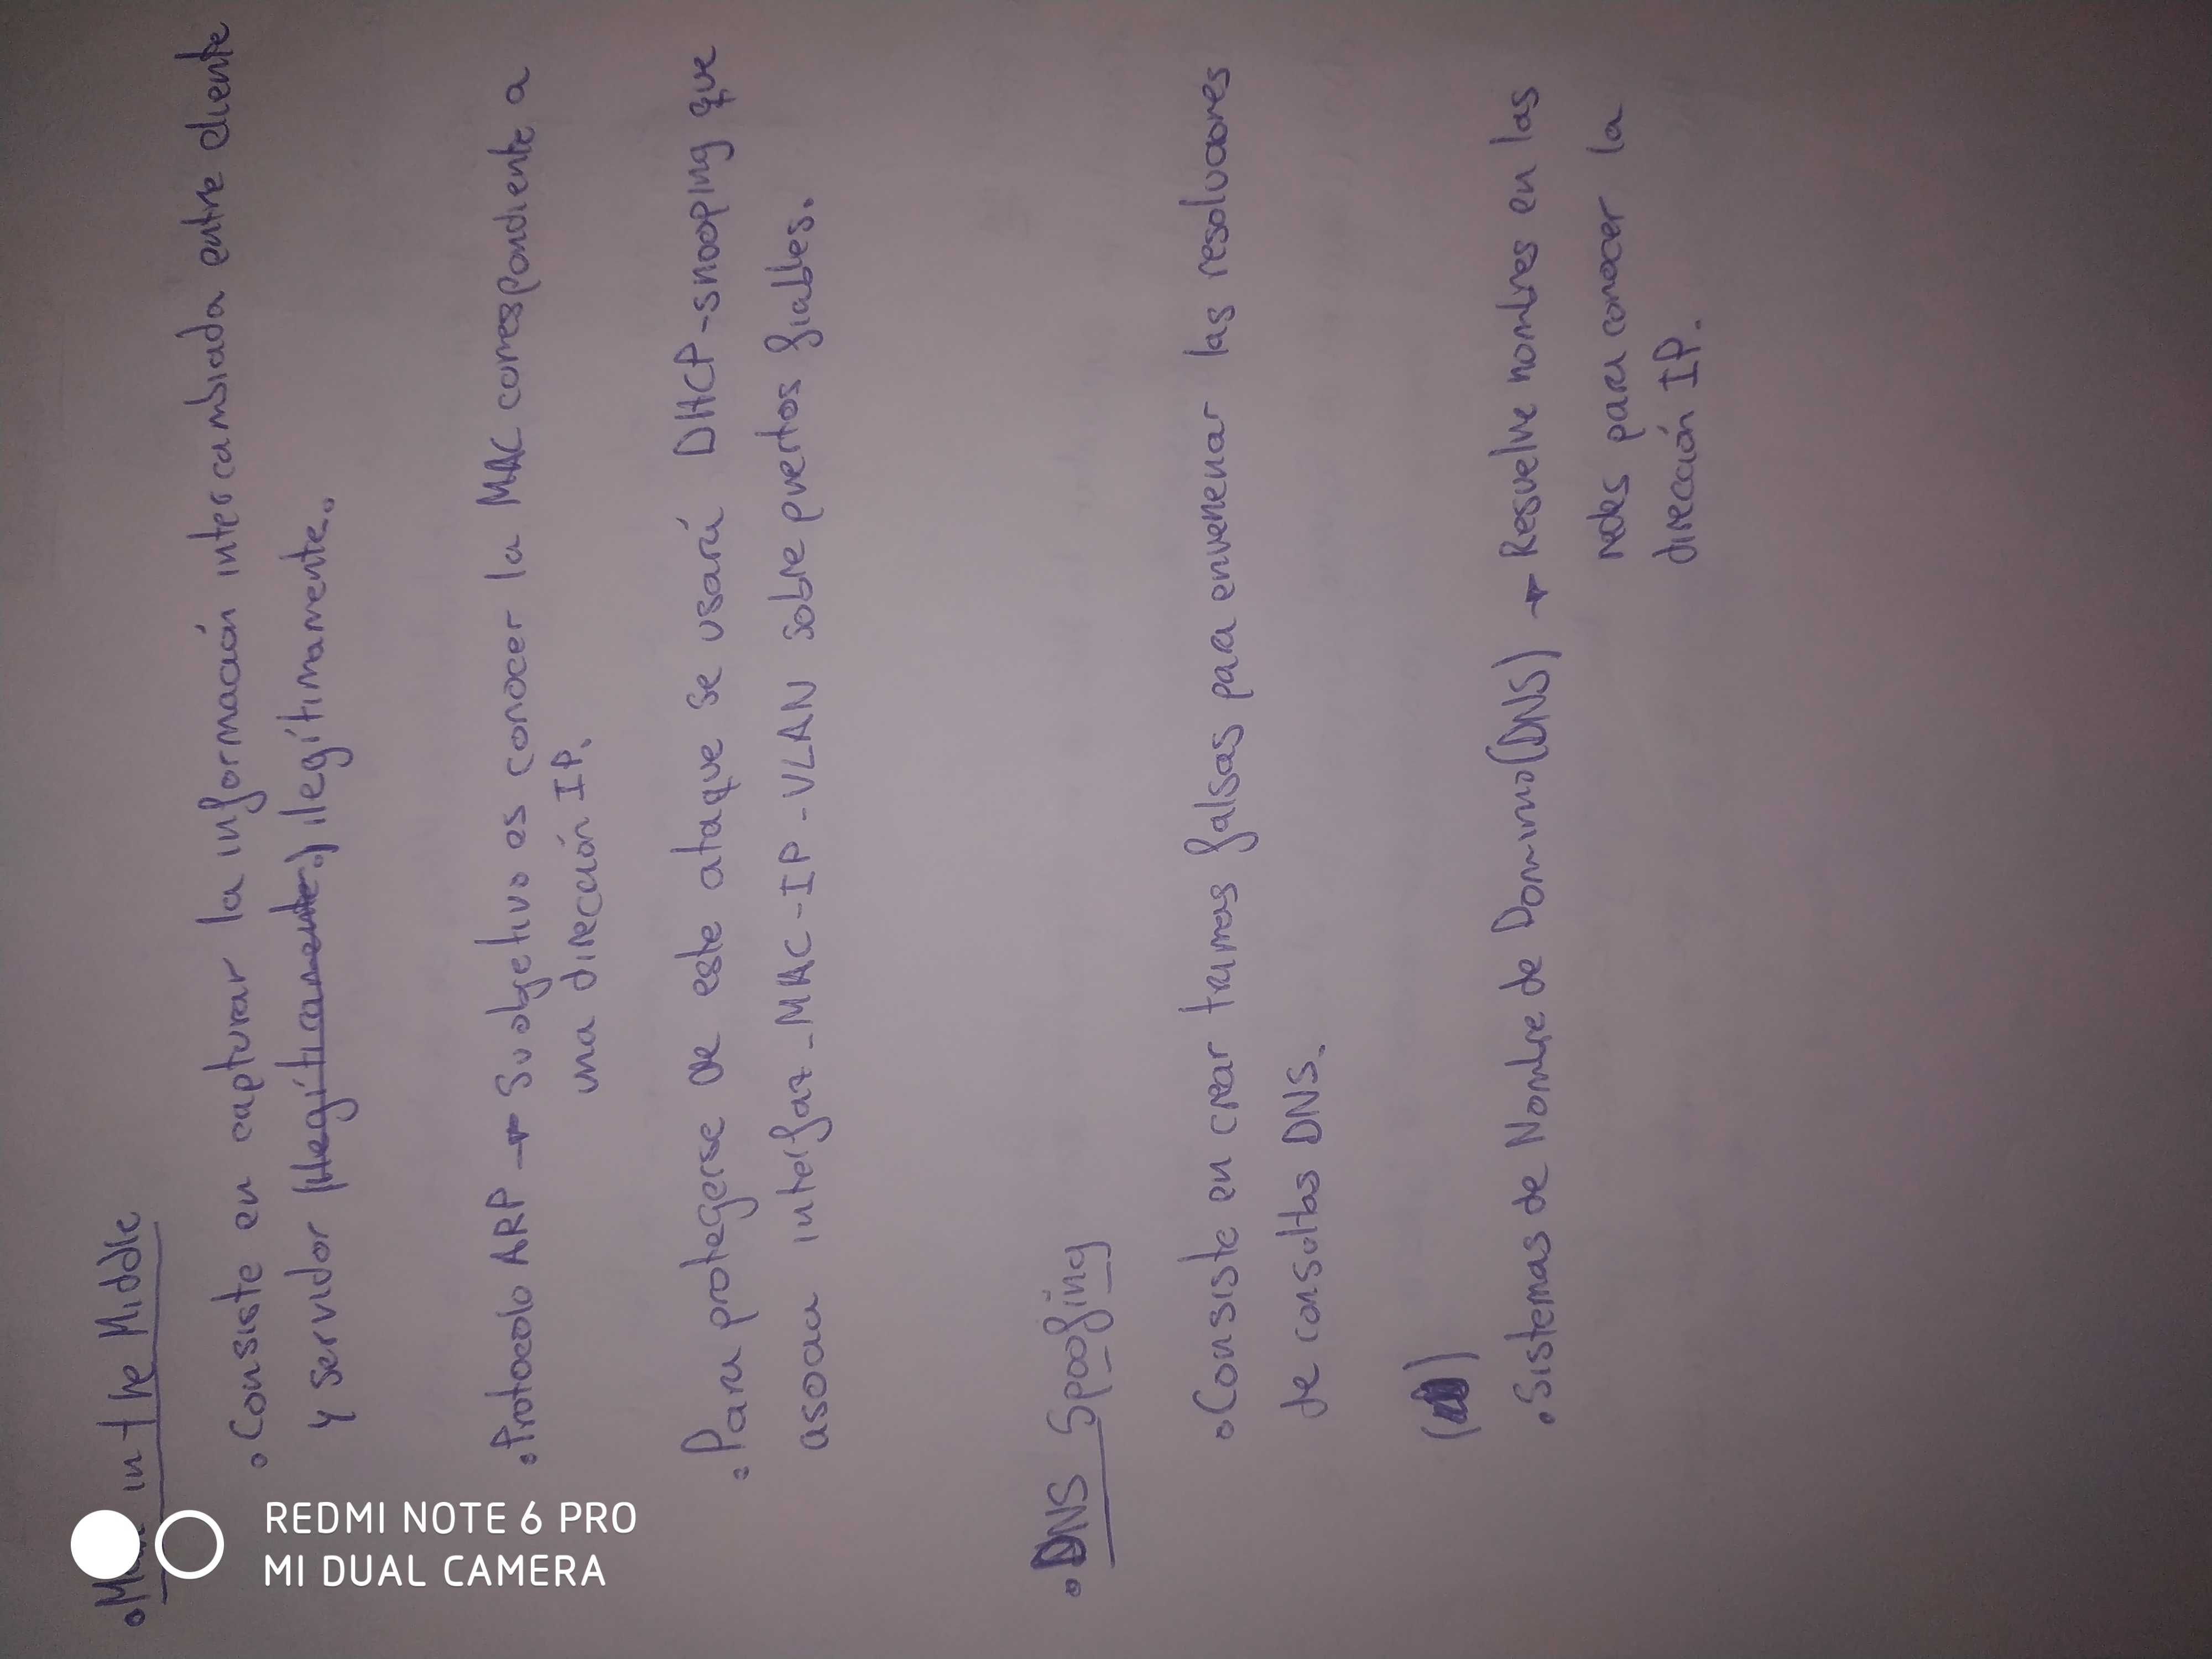 • Man in the Middle
• Consiste en capturar la información intercambiada entre cliente
y servidor (ilegíticamente.) ilegítimamente.
• Protocolo ARP → Su objetivo es conocer la MAC correspondiente a
una dirección IP.
• Para protegerse de este ataque se usará DHCP-snooping que
asocia interfaz-MAC-IP-VLAN sobre puertos fiables.
• DNS Spoofing
• Consiste en crear tramas falsas para envenenar las resoluciones
de consultas DNS.
• Sistemas de Nombre de Dominio (DNS) → Resuelve nombres en las
redes para conocer la
dirección IP.
REDMI NOTE 6 PRO
MI DUAL CAMERA